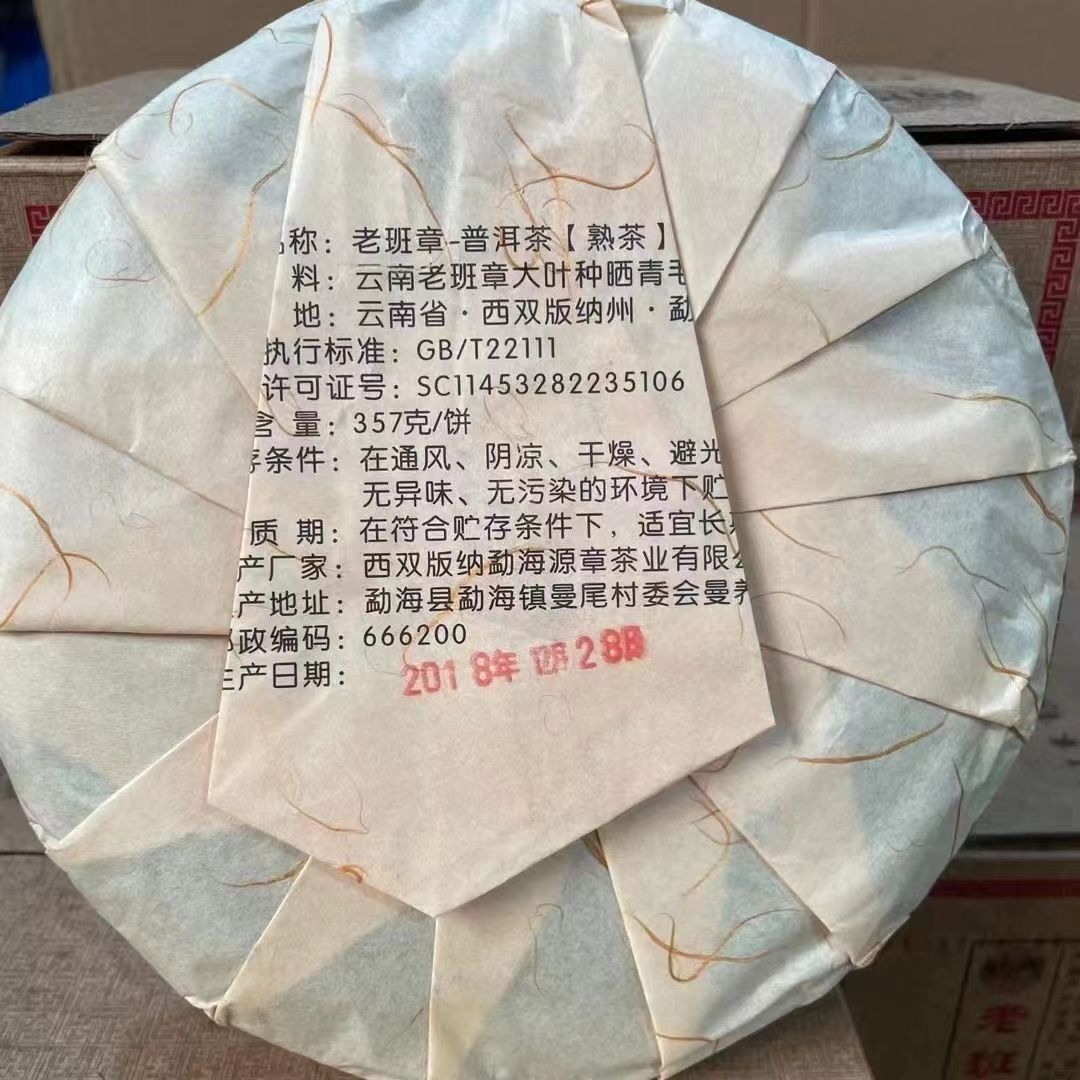 称：老班章-普洱茶【熟茶】
料：云南老班章大叶种晒青毛
地：云南省·西双版纳州·勐
执行标准：GB/T22111
许可证号：SC11453282235106
含 量：357克/饼
存条件：在通风、阴凉、干燥、避光
无异味、无污染的环境下贮
质 期：在符合贮存条件下，适宜长
产厂家：西双版纳勐海源章茶业有限公
产地址：勐海县勐海镇曼尾村委会曼养
邮政编码：666200
生产日期：2018年 28日
老班